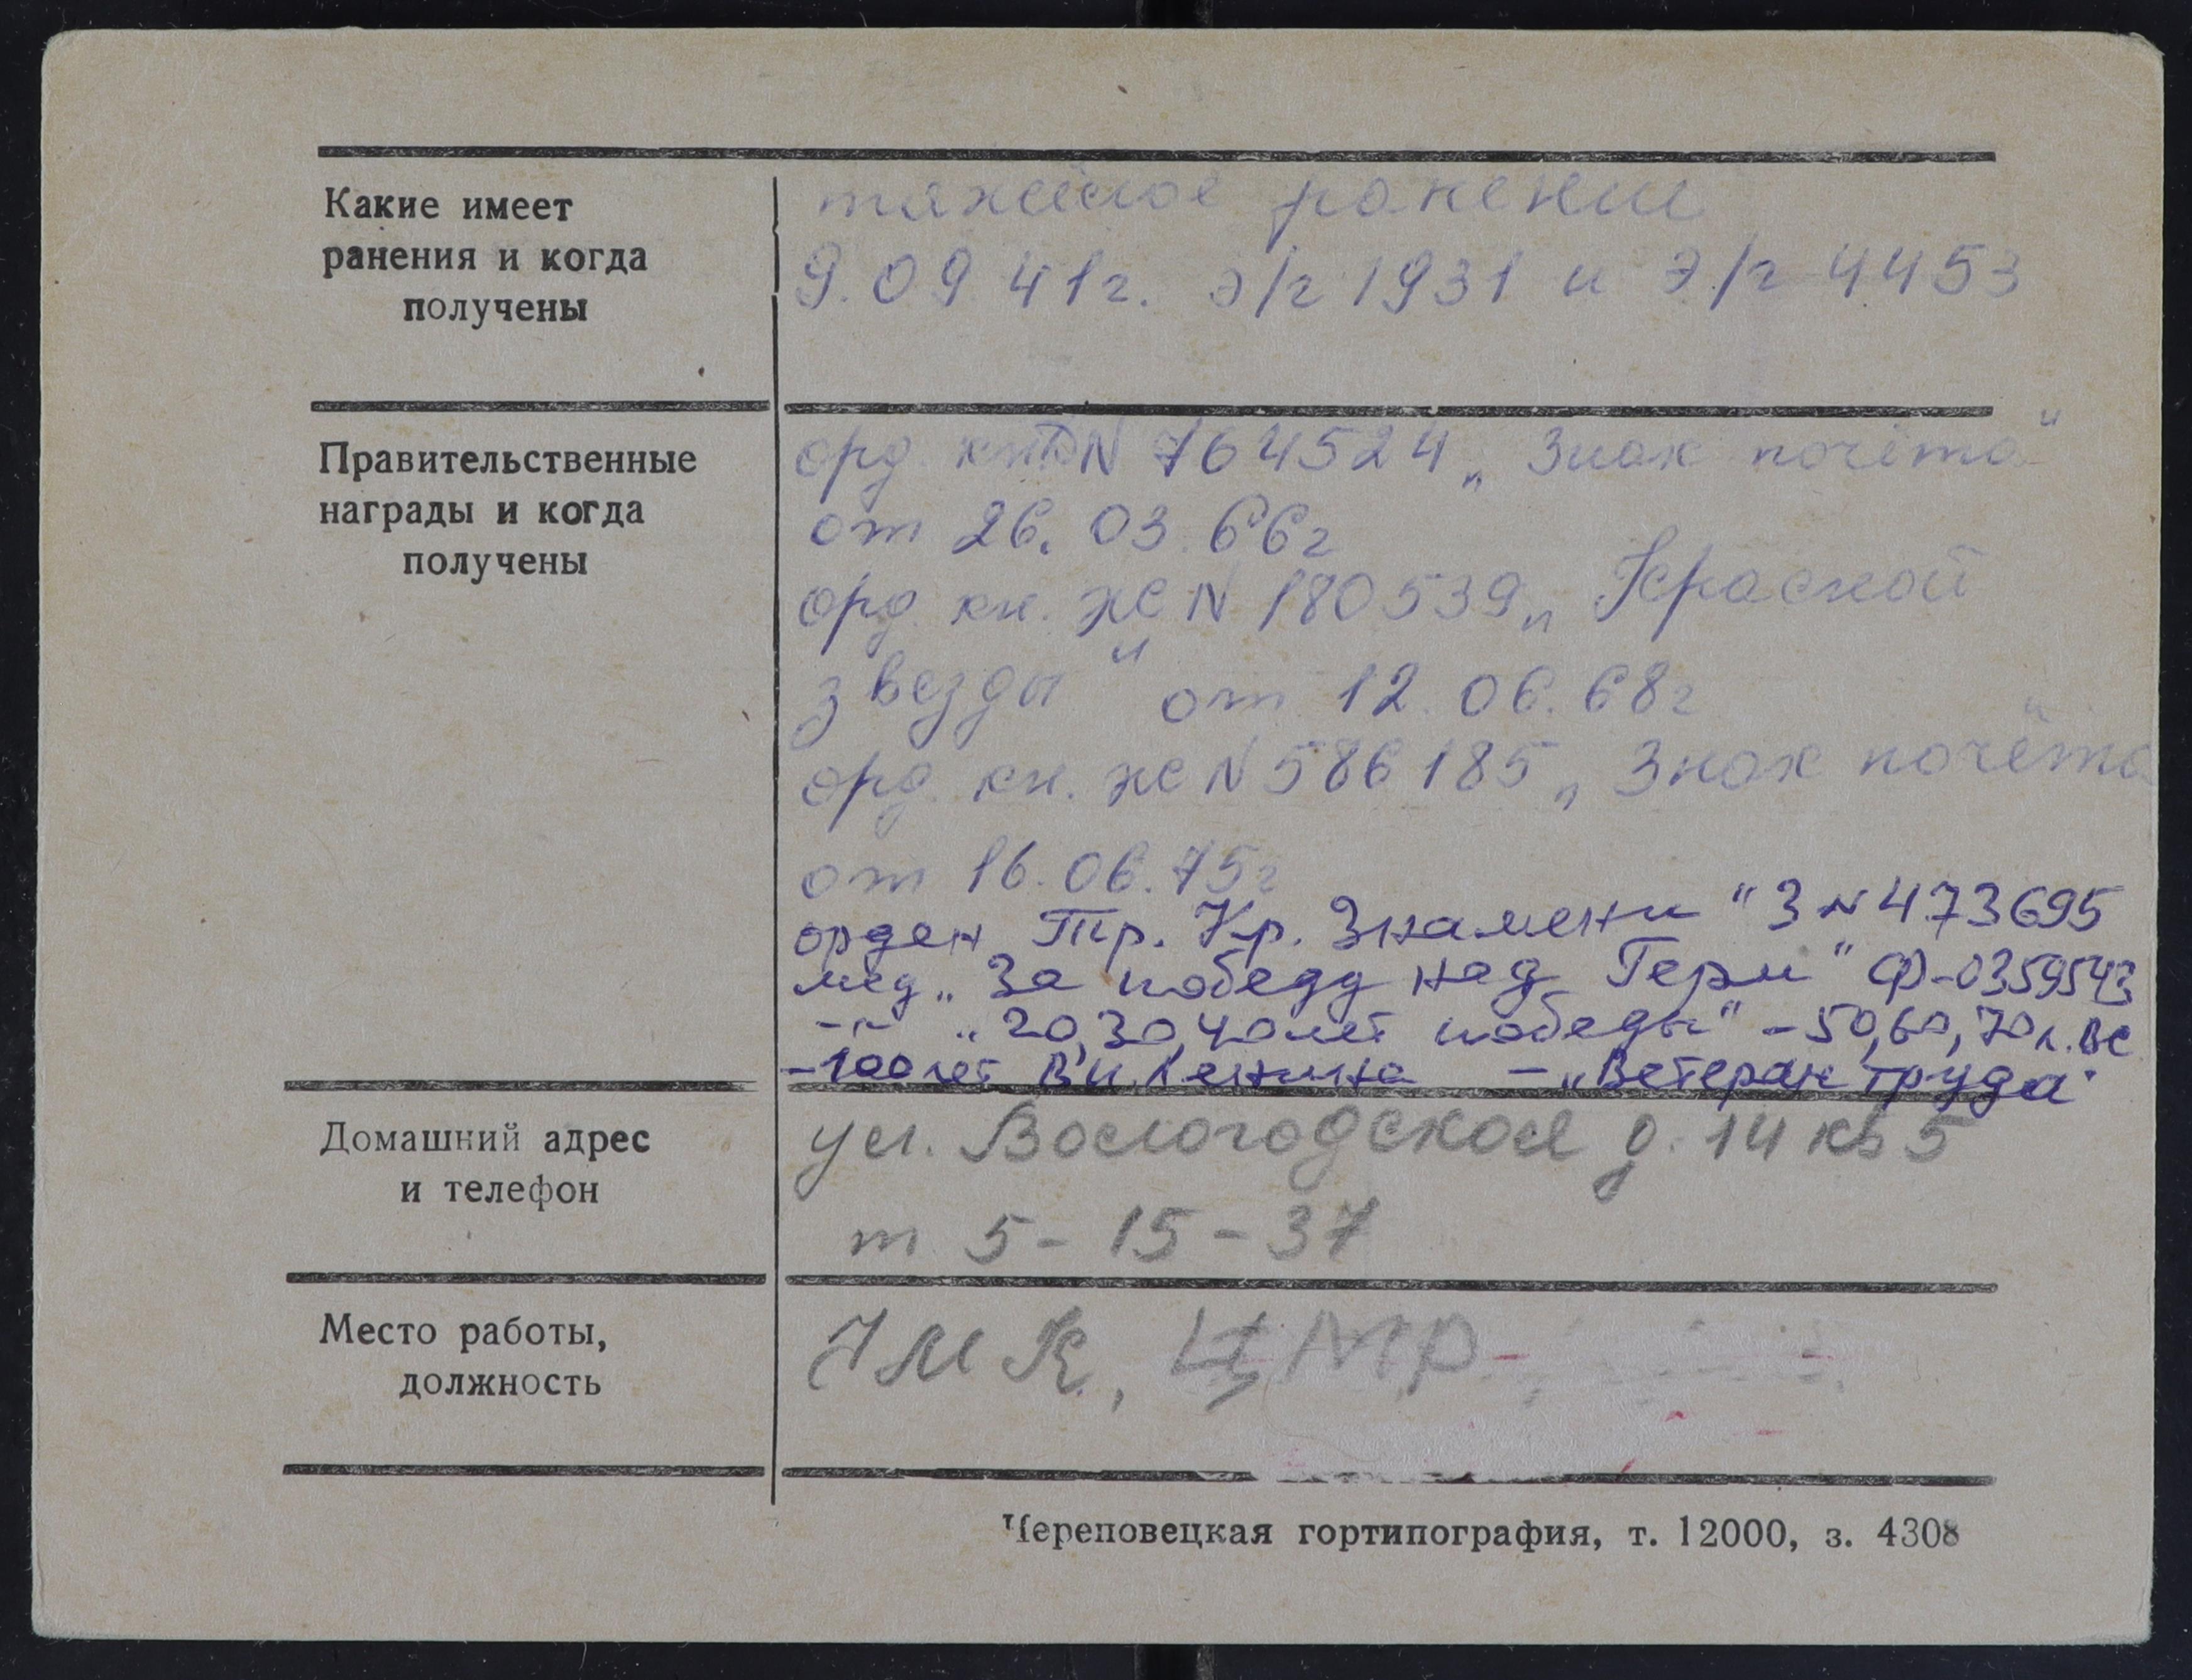 Какие имеет
ранения и когда
получены
тяжелое ранение
9.09.41г. э/г 1931 и э/г 4453
Правительственные
награды и когда
получены
орд. кн. N 764524 „Знак почёта"
от 26.03.66г
орд. кн. ЖС N 180539 „Красной
звезды" от 12.06.68г
орд. кн. ЖС N 586185 „Знак почёта"
от 16.06.75г
орден Тр. Кр. Знамени "З N 473695
мед „За победу над Герм" Ф-0359543
-"- „20,30,40 лет победы" - 50,60,70 л. ВС
-100 лет В.И. Ленина - „Ветеран труда"
Домашний адрес
и телефон
ул. Вологодская д. 14 кв 5
т 5-15-37
Место работы,
должность
ЧМК, ЦМР
Череповецкая гортипография, т. 12000, з. 4308